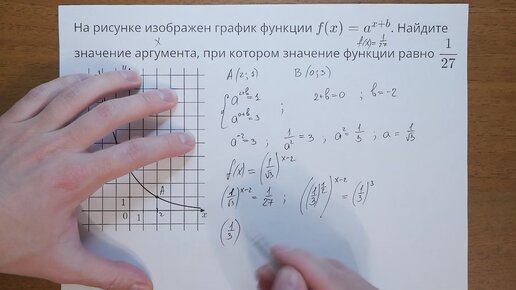 На рисунке изображен график функции f(x) = a^{x+b}. Найдите
x f(x) = 1/27
значение аргумента, при котором значение функции равно 1/27
y
A(2;1) B(0;3)
{ a^{2+b} = 1 ; 2+b=0 ; b=-2
a^{0+b} = 3
a^{-2} = 3 ; 1/a² = 3 ; a² = 1/3 ; a = 1/√3
f(x) = (1/√3)^{x-2}
(1/√3)^{x-2} = 1/27 ; ((1/3)^{1/2})^{x-2} = (1/3)^3
(1/3)
A
1
0 1 2 x